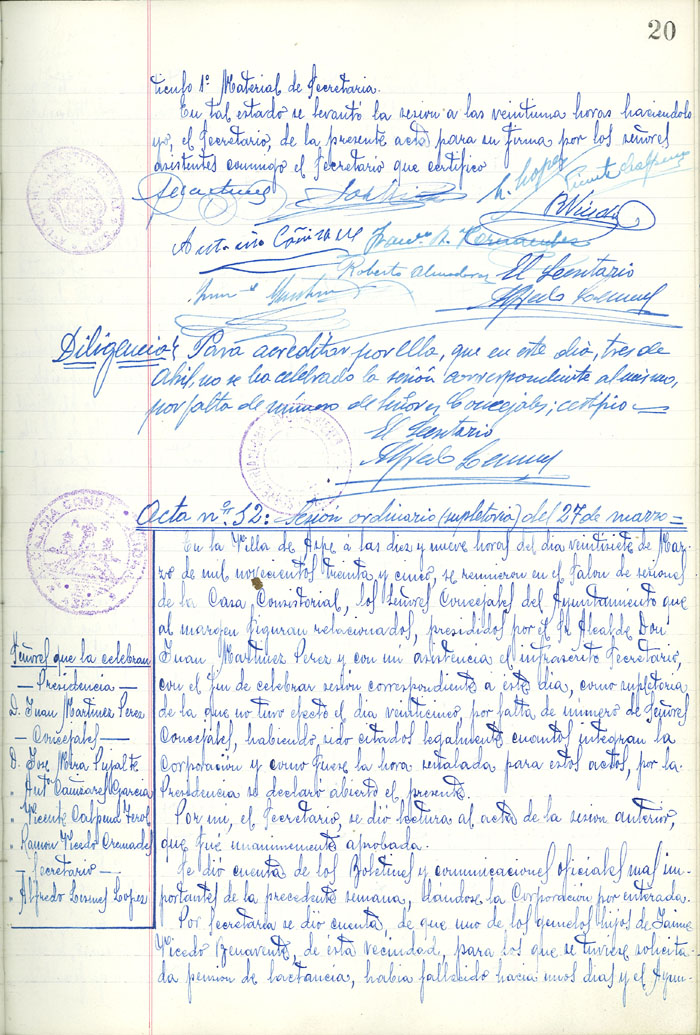 20
tículo 1º Material de Secretaría.
En tal estado se levantó la sesión a las veintiuna horas haciéndolo
yo, el Secretario, de la presente acta para su firma por los señores
asistentes conmigo el Secretario que certifico
h. Lopez
Antonio Cañizares
Hernandez
Roberto Almodovar
El Secretario
Alfredo
Diligencia: Para acreditar por ella, que en este dia, tres de
Abril, no se ha celebrado la sesión correspondiente al mismo,
por falta de número de Señores Concejales; certifico
El Secretario
Alfredo
Acta nº 12: Sesión ordinaria (supletoria) del 27 de marzo =
En la Villa de Aspe á las diez y nueve horas del dia veintisiete de Mar-
zo de mil novecientos treinta y cinco, se reunieron en el Salon de sesiones
de la Casa Consistorial, los señores Concejales del Ayuntamiento que
al margen figuran relacionados, presididos por el Sr Alcalde Don
Juan Martinez Perez y con mi asistencia el infrascrito Secretario,
con el fin de celebrar sesión correspondiente a este dia, como supletoria
de la que no tuvo efecto el dia veinticinco, por falta de número de Señores
Concejales, habiendo sido citados legalmente cuantos integran la
Corporación y como fuese la hora señalada para estos actos, por la
Presidencia se declaró abierto el presente.
Por mi, el Secretario, se dió lectura al acta de la sesion anterior,
que fué unanimemente aprobada.
Se dió cuenta de los Boletines y comunicaciones oficiales mas im-
portantes de la precedente semana, dándose la Corporación por enterada.
Por Secretaria se dió cuenta, de que uno de los gemelos hijos de Jaime
Vicedo Benavente, de esta vecindad, para los que se tuviese solicita-
da pensión de lactancia, habia fallecido hacia unos dias y el Ayun-
Señores que la celebran
— Presidencia —
D. Juan Martinez Perez
— Concejales —
D. Jose Mira Pujalte
" Antº Cañizares Garcia
" Vicente Calpena Terol
" Ramon Vicedo Cremades
— Secretario —
" Alfredo Lopez